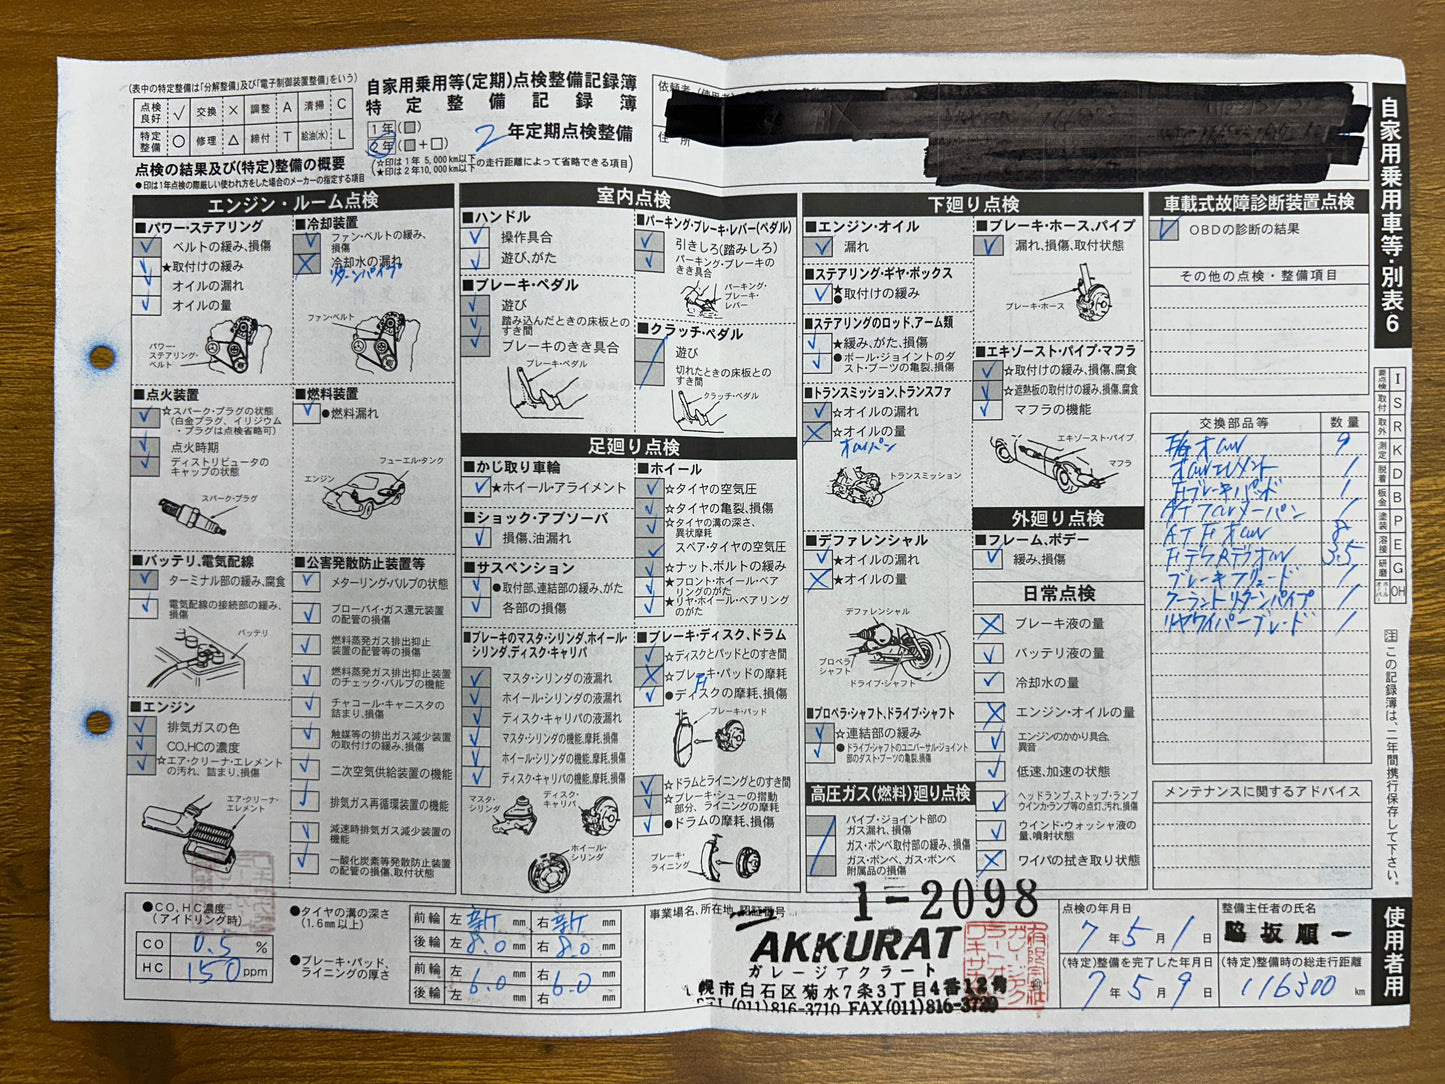 (表中の特定整備は「分解整備」及び「電子制御装置整備」をいう)
点検良好 ✓ 交換 × 調整 A 清掃 C
特定整備 ○ 修理 △ 締付 T 給油(水) L
点検の結果及び(特定)整備の概要
●印は1年点検の際厳しい使われ方をした場合のメーカーの指定する項目
自家用乗用等(定期)点検整備記録簿
特定整備記録簿
1年(■)
2年(■+□)
2 年定期点検整備
(☆印は1年 5,000km以下
★印は2年10,000km以下の走行距離によって省略できる項目)
依頼者
住所
自家用乗用車等・別表6
エンジン・ルーム点検
■パワー・ステアリング
✓ ベルトの緩み、損傷
✓ ★取付けの緩み
✓ オイルの漏れ
✓ オイルの量
パワー・ステアリング・ベルト
■冷却装置
✓ ファン・ベルトの緩み、損傷
× 冷却水の漏れ
リターンパイプ
ファン・ベルト
■点火装置
✓ ☆スパーク・プラグの状態
(白金プラグ、イリジウム・プラグは点検省略可)
✓ 点火時期
✓ ディストリビュータのキャップの状態
スパーク・プラグ
■燃料装置
✓ ●燃料漏れ
フューエル・タンク
エンジン
■バッテリ、電気配線
✓ ターミナル部の緩み、腐食
✓ 電気配線の接続部の緩み、損傷
バッテリ
■エンジン
✓ 排気ガスの色
✓ CO、HCの濃度
✓ ☆エア・クリーナ・エレメントの汚れ、詰まり、損傷
エア・クリーナ・エレメント
■公害発散防止装置等
✓ メターリング・バルブの状態
✓ ブローバイ・ガス還元装置の配管の損傷
✓ 燃料蒸発ガス排出抑止装置の配管等の損傷
✓ 燃料蒸発ガス排出抑止装置のチェック・バルブの機能
✓ チャコール・キャニスタの詰まり、損傷
✓ 触媒等の排出ガス減少装置の取付けの緩み、損傷
✓ 二次空気供給装置の機能
✓ 排気ガス再循環装置の機能
✓ 減速時排気ガス減少装置の機能
✓ 一酸化炭素等発散防止装置の配管の損傷、取付状態
室内点検
■ハンドル
✓ 操作具合
✓ 遊び、がた
■ブレーキ・ペダル
✓ 遊び
✓ 踏み込んだときの床板とのすき間
✓ ブレーキのきき具合
ブレーキ・ペダル
■パーキング・ブレーキ・レバー(ペダル)
✓ 引きしろ(踏みしろ)
✓ パーキング・ブレーキのきき具合
パーキング・ブレーキ・レバー
■クラッチ・ペダル
遊び
切れたときの床板とのすき間
クラッチ・ペダル
足廻り点検
■かじ取り車輪
✓ ★ホイール・アライメント
■ショック・アブソーバ
✓ 損傷、油漏れ
■サスペンション
✓ ●取付部、連結部の緩み、がた
✓ 各部の損傷
■ブレーキのマスタ・シリンダ、ホイール・シリンダ、ディスク・キャリパ
✓ マスタ・シリンダの液漏れ
✓ ホイール・シリンダの液漏れ
✓ ディスク・キャリパの液漏れ
✓ マスタ・シリンダの機能、摩耗、損傷
✓ ホイール・シリンダの機能、摩耗、損傷
✓ ディスク・キャリパの機能、摩耗、損傷
マスタ・シリンダ
ディスク・キャリパ
ホイール・シリンダ
■ホイール
✓ ☆タイヤの空気圧
✓ ☆タイヤの亀裂、損傷
✓ ☆タイヤの溝の深さ、異状摩耗
✓ スペア・タイヤの空気圧
✓ ☆ナット、ボルトの緩み
✓ ★フロント・ホイール・ベアリングのがた
✓ ★リヤ・ホイール・ベアリングのがた
■ブレーキ・ディスク、ドラム
✓ ☆ディスクとパッドとのすき間
× ☆ブレーキ・パッドの摩耗
✓ ●ディスクの摩耗、損傷
ブレーキ・パッド
✓ ☆ドラムとライニングとのすき間
✓ ☆ブレーキ・シューの摺動部分、ライニングの摩耗
✓ ●ドラムの摩耗、損傷
ブレーキ・ライニング
下廻り点検
■エンジン・オイル
✓ 漏れ
■ステアリング・ギヤ・ボックス
✓ ★●取付けの緩み
■ステアリングのロッド、アーム類
✓ ★緩み、がた、損傷
✓ ●ボール・ジョイントのダスト・ブーツの亀裂、損傷
■トランスミッション、トランスファ
✓ ☆オイルの漏れ
× ☆オイルの量
オイルパン
トランスミッション
■デファレンシャル
✓ ★オイルの漏れ
× ★オイルの量
デファレンシャル
プロペラシャフト
ドライブ・シャフト
■プロペラ・シャフト、ドライブ・シャフト
✓ ☆連結部の緩み
✓ ●ドライブ・シャフトのユニバーサル・ジョイント部のダスト・ブーツの亀裂、損傷
高圧ガス(燃料)廻り点検
パイプ・ジョイント部のガス漏れ、損傷
ガス・ボンベ取付部の緩み、損傷
ガス・ボンベ、ガス・ボンベ附属品の損傷
■ブレーキ・ホース、パイプ
✓ 漏れ、損傷、取付状態
ブレーキ・ホース
■エキゾースト・パイプ・マフラ
✓ ☆取付けの緩み、損傷、腐食
✓ ☆遮熱板の取付けの緩み、損傷、腐食
✓ マフラの機能
エキゾースト・パイプ
マフラ
外廻り点検
■フレーム、ボデー
✓ 緩み、損傷
日常点検
× ブレーキ液の量
✓ バッテリ液の量
✓ 冷却水の量
× エンジン・オイルの量
✓ エンジンのかかり具合、異音
✓ 低速、加速の状態
✓ ヘッドランプ、ストップ・ランプウインカランプ等の点灯、汚れ、損傷
✓ ウインド・ウォッシャ液の量、噴射状態
× ワイパの拭き取り状態
車載式故障診断装置点検
✓ OBDの診断の結果
その他の点検・整備項目
交換部品等 数量
E/gオイル 9
オイルエレメント 1
Fブレーキパッド 1
ATオイルパン 1
ATFオイル 8
FデフRデフオイル 3.5
ブレーキフリュード 1
クーラントリターンパイプ 1
リヤワイパーブレード 1
メンテナンスに関するアドバイス
要点検 I
取付 S
取外 R
測定 K
脱着 D
板金 B
塗装 P
溶接 E
研磨 G
オーバーホール OH
注 この記録簿は、二年間携行保存して下さい。
使用者用
●CO、HC濃度
(アイドリング時)
CO 0.5 %
HC 150 ppm
●タイヤの溝の深さ
(1.6mm以上)
前輪 左 新 mm 右 新 mm
後輪 左 8.0 mm 右 8.0 mm
●ブレーキ・パッド、ライニングの厚さ
前輪 左 6.0 mm 右 6.0 mm
後輪
事業場名、所在地、認証番号
1-2098
AKKURAT
ガレージアクラート
札幌市白石区菊水7条3丁目4番12号
TEL(011)816-3710 FAX(011)816-3720
点検の年月日
7年5月1日
(特定)整備を完了した年月日
7年5月9日
整備主任者の氏名
脇坂順一
(特定)整備時の総走行距離
116300 km